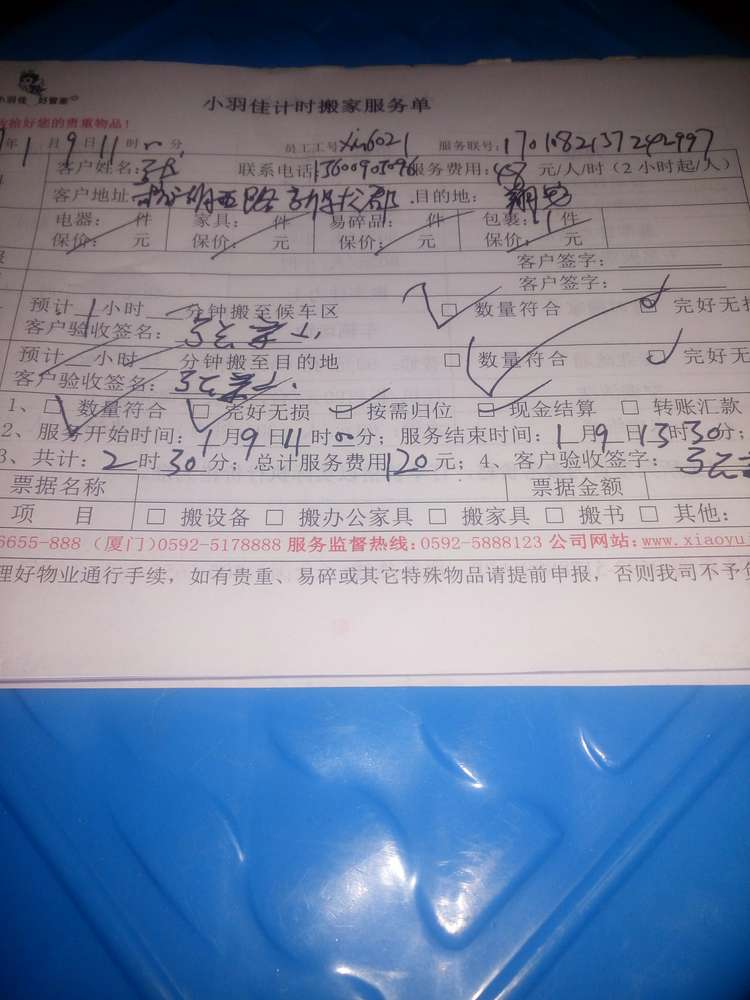 小羽佳 好管家
小羽佳计时搬家服务单
拾好您的贵重物品！
年1月9日11时00分 员工工号xm6021 服务联号：1701082137242997
客户姓名： 联系电话13600903096服务费用：48元/人/时（2小时起/人）
客户地址 目的地：
电器： 件 家具： 件 易碎品： 件 包裹：1件
保价： 元 保价： 元 保价： 元 保价： 元
客户签字：
客户签字：
预计1小时 分钟搬至候车区 □ 数量符合 □ 完好无损
客户验收签名：
预计 小时 分钟搬至目的地 □ 数量符合 □ 完好无
客户验收签名：
1、□ 数量符合 □ 完好无损 □ 按需归位 □ 现金结算 □ 转账汇款
2、服务开始时间：1月9日11时00分；服务结束时间：1月9日13时30分；
3、共计：2时30分；总计服务费用120元；4、客户验收签字：
票据名称 票据金额
项 目 □ 搬设备 □ 搬办公家具 □ 搬家具 □ 搬书 □ 其他：
6655-888（厦门）0592-5178888 服务监督热线：0592-5888123 公司网站：www.xiaoyu
理好物业通行手续，如有贵重、易碎或其它特殊物品请提前申报，否则我司不予